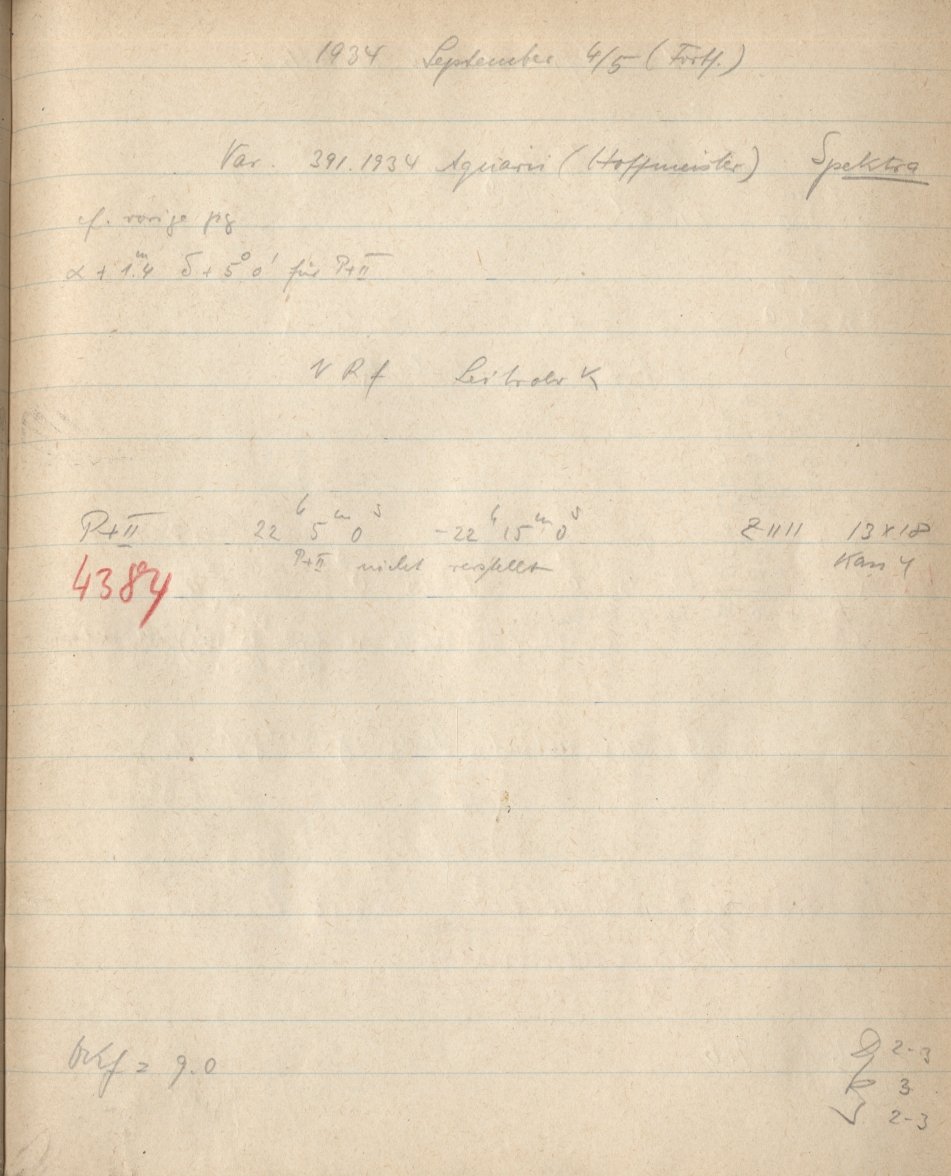 1934 September 4/5 (Forts.)
Var. 391.1934 Aquarii (Hoffmeister) Spektra
cf. vorige pg
α + 1ᵐ.4 δ + 5° 0′ für P+II
V R f Leitrohr K
P+II 22ʰ 5ᵐ 0ˢ -22ʰ 15ᵐ 0ˢ Z 1111 13×18
P+II nicht verstellt Kass 4
4384
Okf = 9.0
2-3
3
2-3